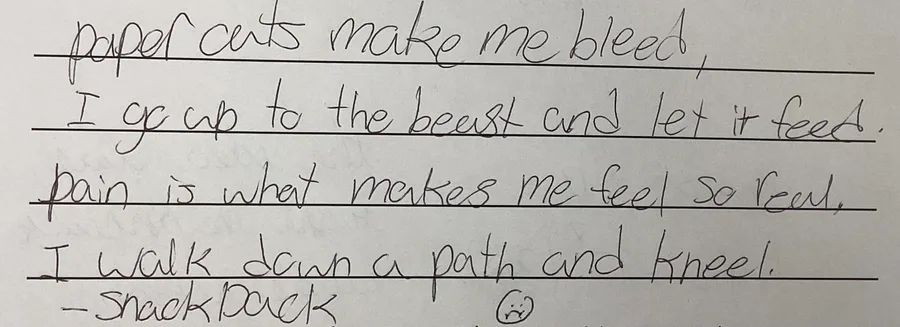 paper cuts make me bleed,
I go up to the beast and let it feed.
pain is what makes me feel so real.
I walk down a path and kneel.
- Snack Dack